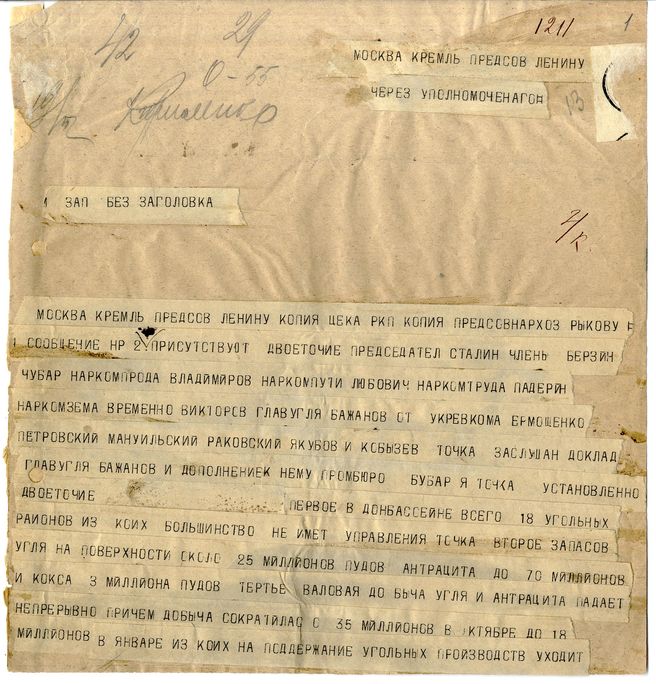 42
29
1211
1
0-55
МОСКВА КРЕМЛЬ ПРЕДСОВ ЛЕНИНУ
ЧЕРЕЗ УПОЛНОМОЧЕНАГО
13
ЗАП БЕЗ ЗАГОЛОВКА
МОСКВА КРЕМЛЬ ПРЕДСОВ ЛЕНИНУ КОПИЯ ЦЕКА РКП КОПИЯ ПРЕДСОВНАРХОЗ РЫКОВУ
СООБЩЕНИЕ НР 2 ПРИСУТСТВУЮТ ДВОЕТОЧИЕ ПРЕДСЕДАТЕЛ СТАЛИН ЧЛЕНЬ БЕРЗИН
ЧУБАР НАРКОМПРОДА ВЛАДИМИРОВ НАРКОМПУТИ ЛЮБОВИЧ НАРКОМТРУДА ПАДЕРИН
НАРКОМЗЕМА ВРЕМЕННО ВИКТОРОВ ГЛАВУГЛЯ БАЖАНОВ ОТ УКРЕВКОМА ЕРМОЩЕНКО
ПЕТРОВСКИЙ МАНУИЛЬСКИЙ РАКОВСКИЙ ЯКУБОВ И КОБЫЗЕВ ТОЧКА ЗАСЛУШАН ДОКЛАД
ГЛАВУГЛЯ БАЖАНОВ И ДОПОЛНЕНИЕК НЕМУ ПРОМБЮРО БУБАР Я ТОЧКА УСТАНОВЛЕННО
ДВОЕТОЧИЕ ПЕРВОЕ В ДОНБАССЕЙНЕ ВСЕГО 18 УГОЛЬНЫХ
РАИОНОВ ИЗ КОИХ БОЛЬШИНСТВО НЕ ИМЕТ УПРАВЛЕНИЯ ТОЧКА ВТОРОЕ ЗАПАСОВ
УГЛЯ НА ПОВЕРХНОСТИ ОКОЛО 25 МИЛЛИОНОВ ПУДОВ АНТРАЦИТА ДО 70 МИЛЛИОНОВ
И КОКСА 3 МИЛЛИОНА ПУДОВ ТЕРТЬЕ ВАЛОВАЯ ДО БЫЧА УГЛЯ И АНТРАЦИТА ПАДАЕТ
НЕПРЕРЫВНО ПРИЧЕМ ДОБЫЧА СОКРАТИЛАС С 35 МИЛЛИОНОВ В КТЯБРЕ ДО 18
МИЛЛИОНОВ В ЯНВАРЕ ИЗ КОИХ НА ПОДДЕРЖАНИЕ УГОЛЬНЫХ ПРОИЗВОДСТВ УХОДИТ